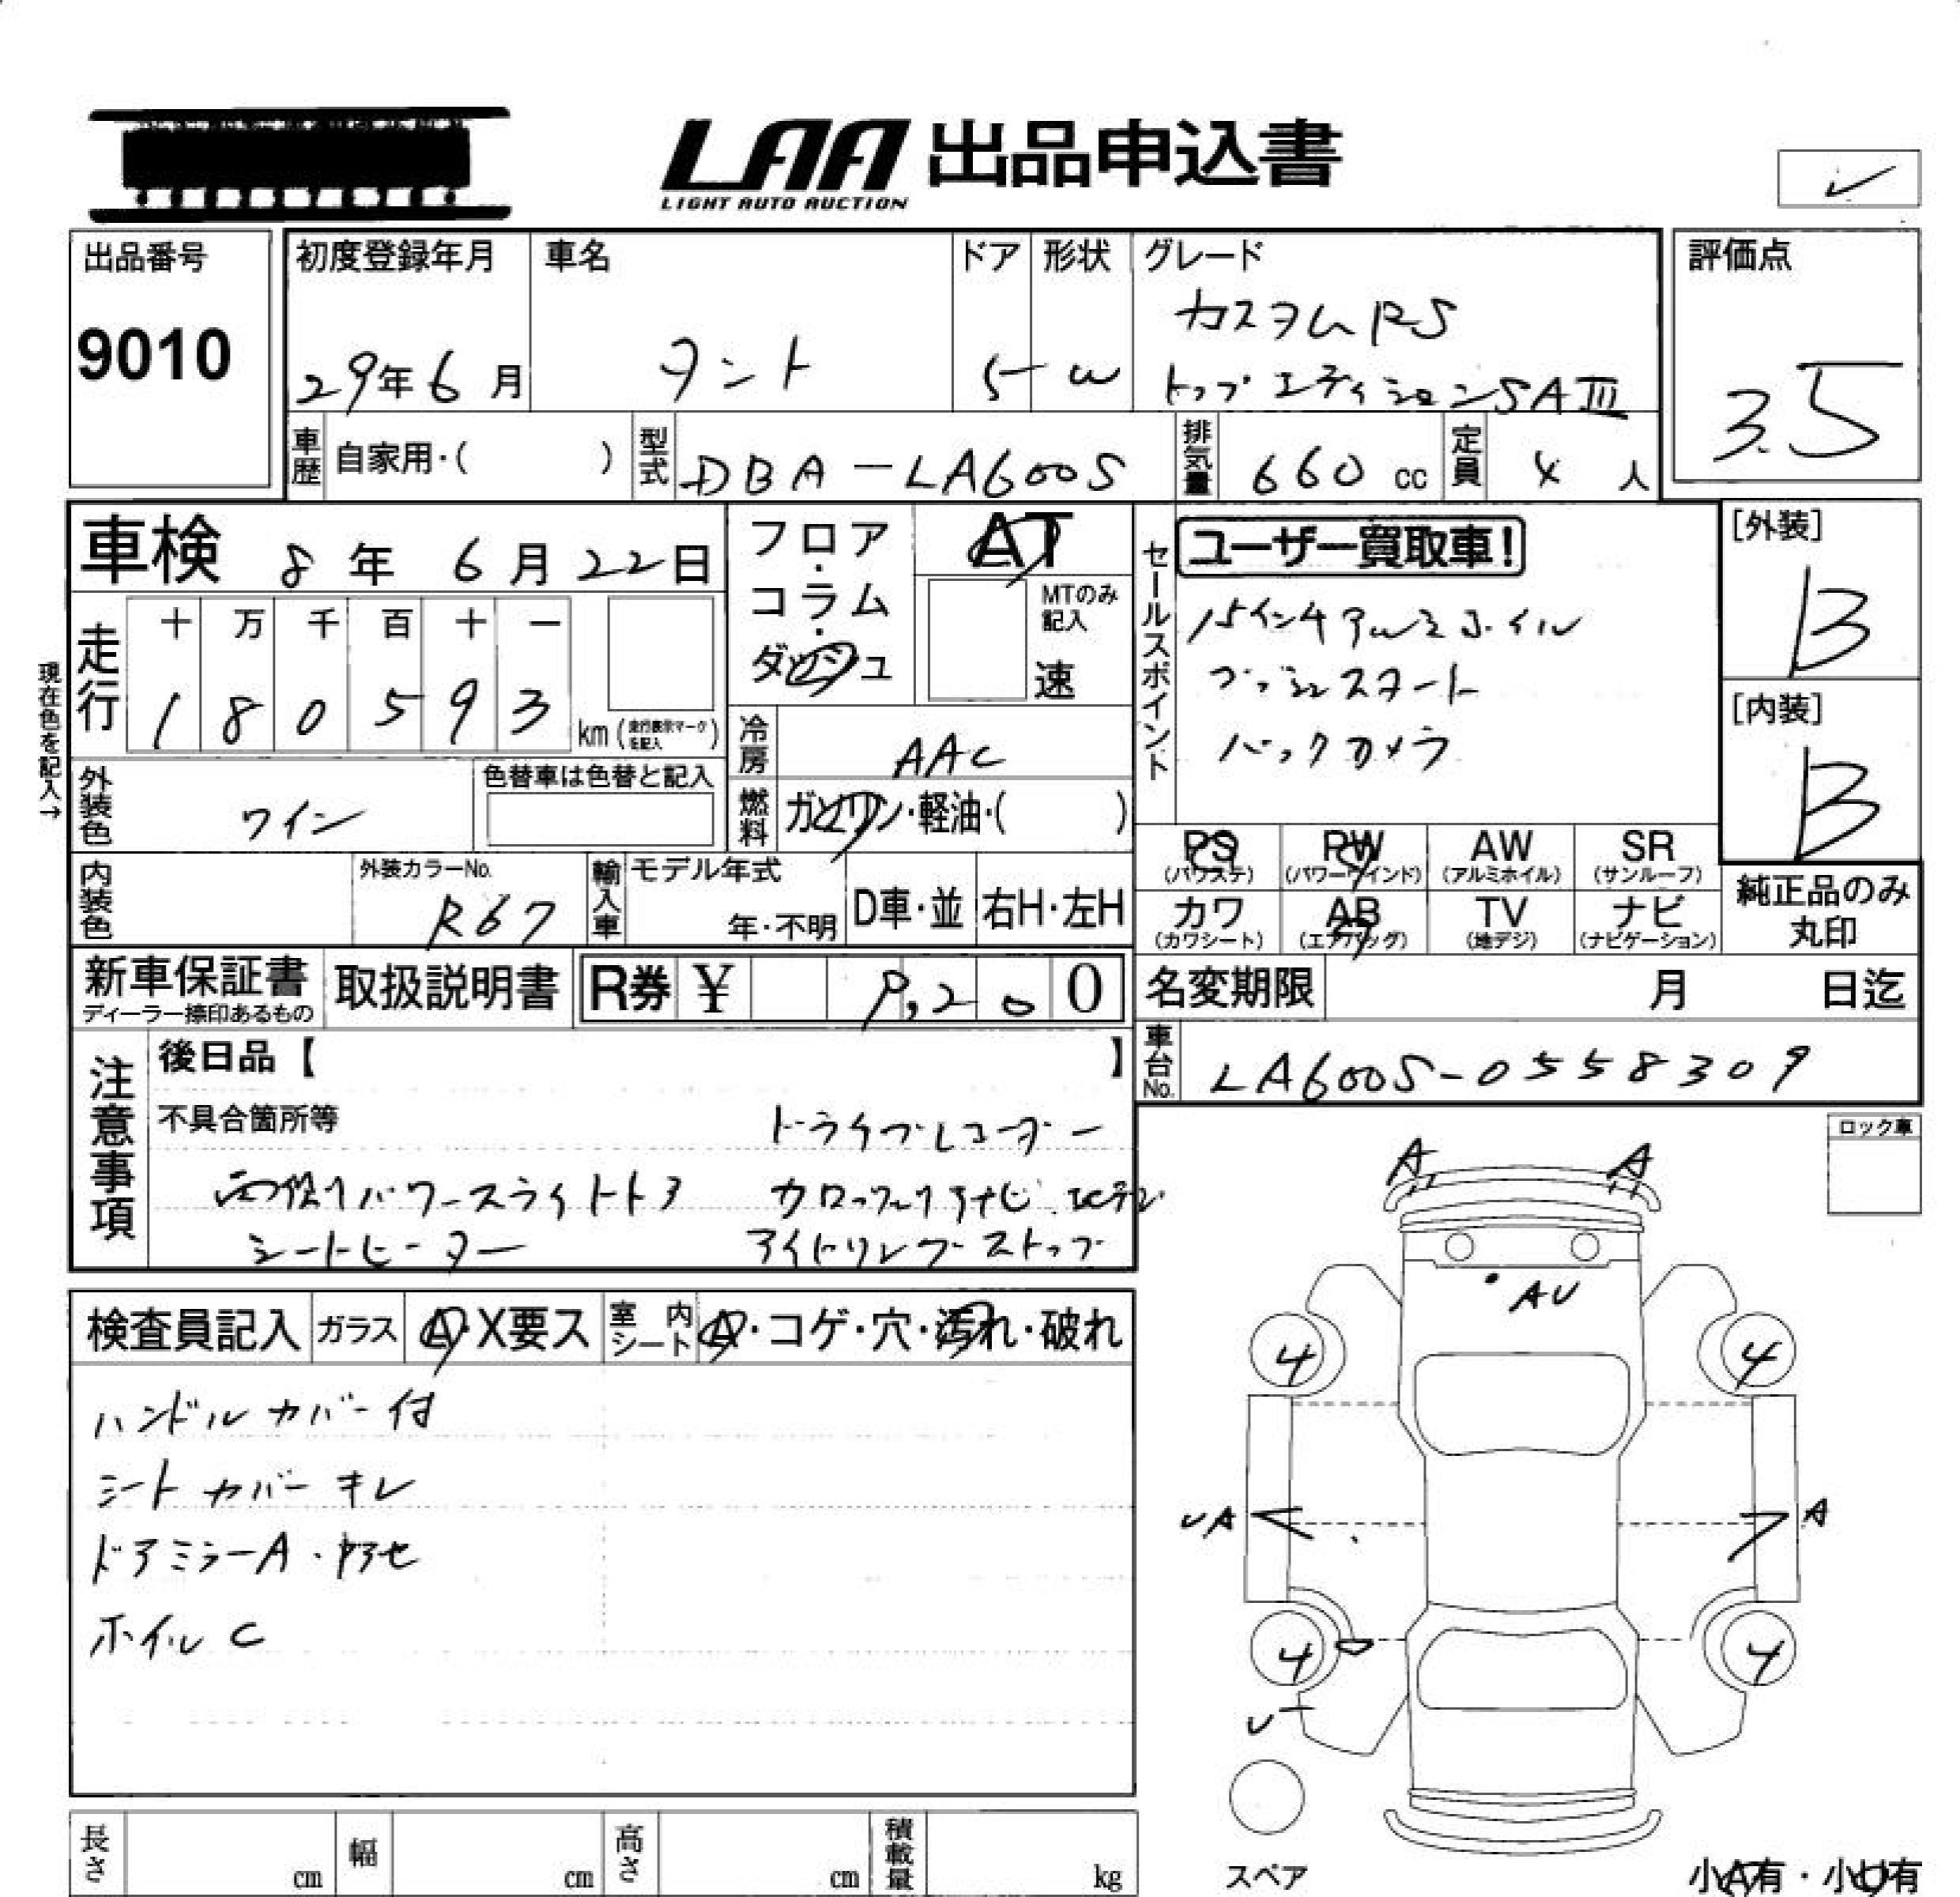 LAA 出品申込書
LIGHT AUTO AUCTION
✓
出品番号
9010
初度登録年月
29年6月
車名
タント
ドア
5
形状
W
グレード
カスタムRS
トップエディションSAⅢ
評価点
3.5
車歴 自家用・( )
型式 DBA-LA600S
排気量 660 cc
定員 4 人
車検 8年6月22日
フロア・コラム・ダッシュ
AT
MTのみ記入
速
セールスポイント
ユーザー買取車!
15インチアルミホイル
プッシュスタート
バックカメラ
[外装]
B
[内装]
B
現在色を記入→
走行
十 万 千 百 十 一
1 8 0 5 9 3 km(走行表示マークを記入)
冷房 AAC
燃料 ガソリン・軽油・( )
外装色 ワイン
色替車は色替と記入
内装色
外装カラーNo.
R67
輸入車
モデル年式
年・不明
D車・並
右H・左H
PS (パワステ)
PW (パワーウインド)
AW (アルミホイル)
SR (サンルーフ)
カワ (カワシート)
AB (エアバッグ)
TV (地デジ)
ナビ (ナビゲーション)
純正品のみ丸印
新車保証書
ディーラー捺印あるもの
取扱説明書
R券 ¥ 9,200
名変期限 月 日迄
車台No. LA600S-0558309
注意事項
後日品【 】
不具合箇所等
ドライブレコーダー
両側パワースライドドア
シートヒーター
アイドリングストップ
ロック車
検査員記入
ガラス A・X要ス
室内シート A・コゲ・穴・汚れ・破れ
ハンドルカバー付
シートカバーキレ
ドアミラーA・ヤケ
ホイルC
A A
AU
4 4
UA A
4 4
U
スペア
小A有・小U有
長さ cm
幅 cm
高さ cm
積載量 kg